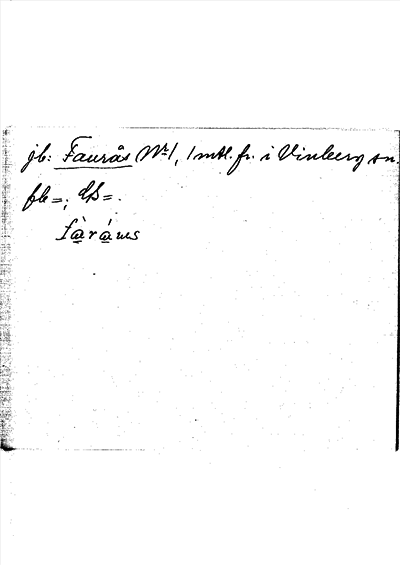 jb: Faurås Nr 1, 1 mtl. fr. i Vinberg sn.
fb =; db =.
fàráws